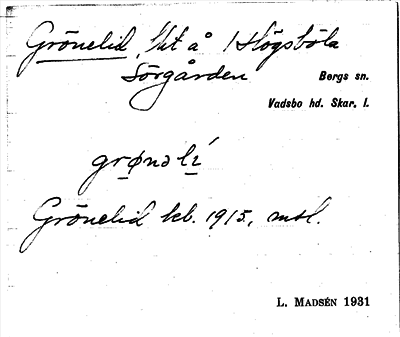 Grönelid, lht å 1 Högsböla
Sörgården Bergs sn.
Vadsbo hd. Skar. l.
grønə lí
Grönelid kb. 1915, mtl.
L. MADSÉN 1931